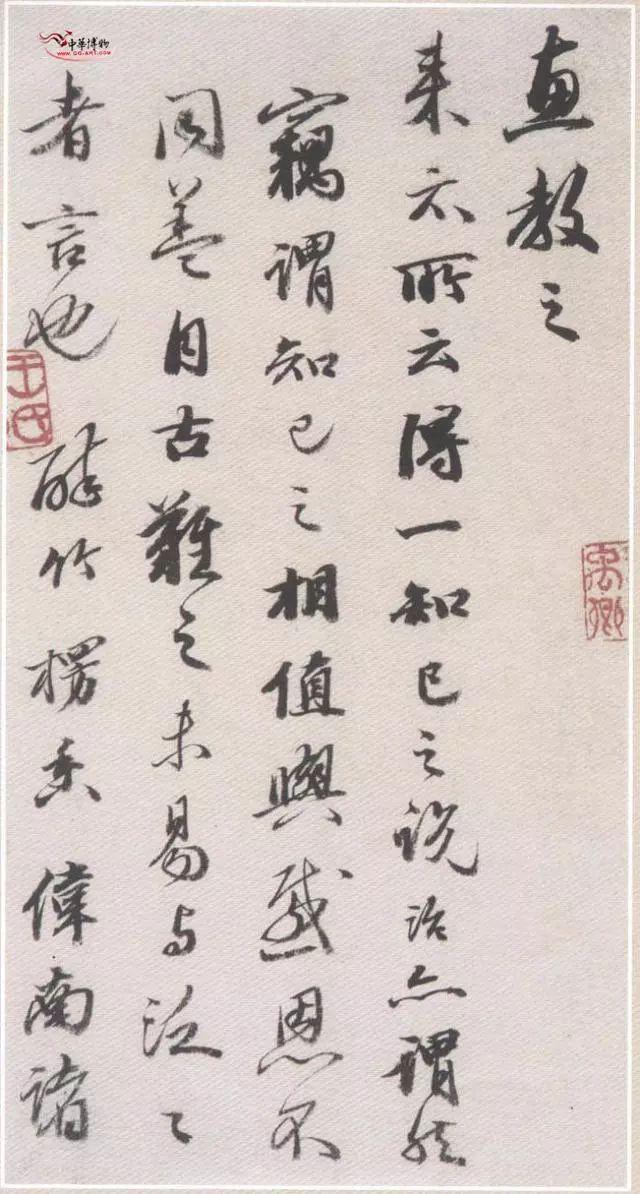 直教之
来示所云得一知己之説治亦謂然
竊謂知己之相值與感恩不
同蓋自古難之未易与泛々
者言也 醉竹楞香 偉南諸
禹卿
王氏
中華博物
WWW.GG-ART.COM